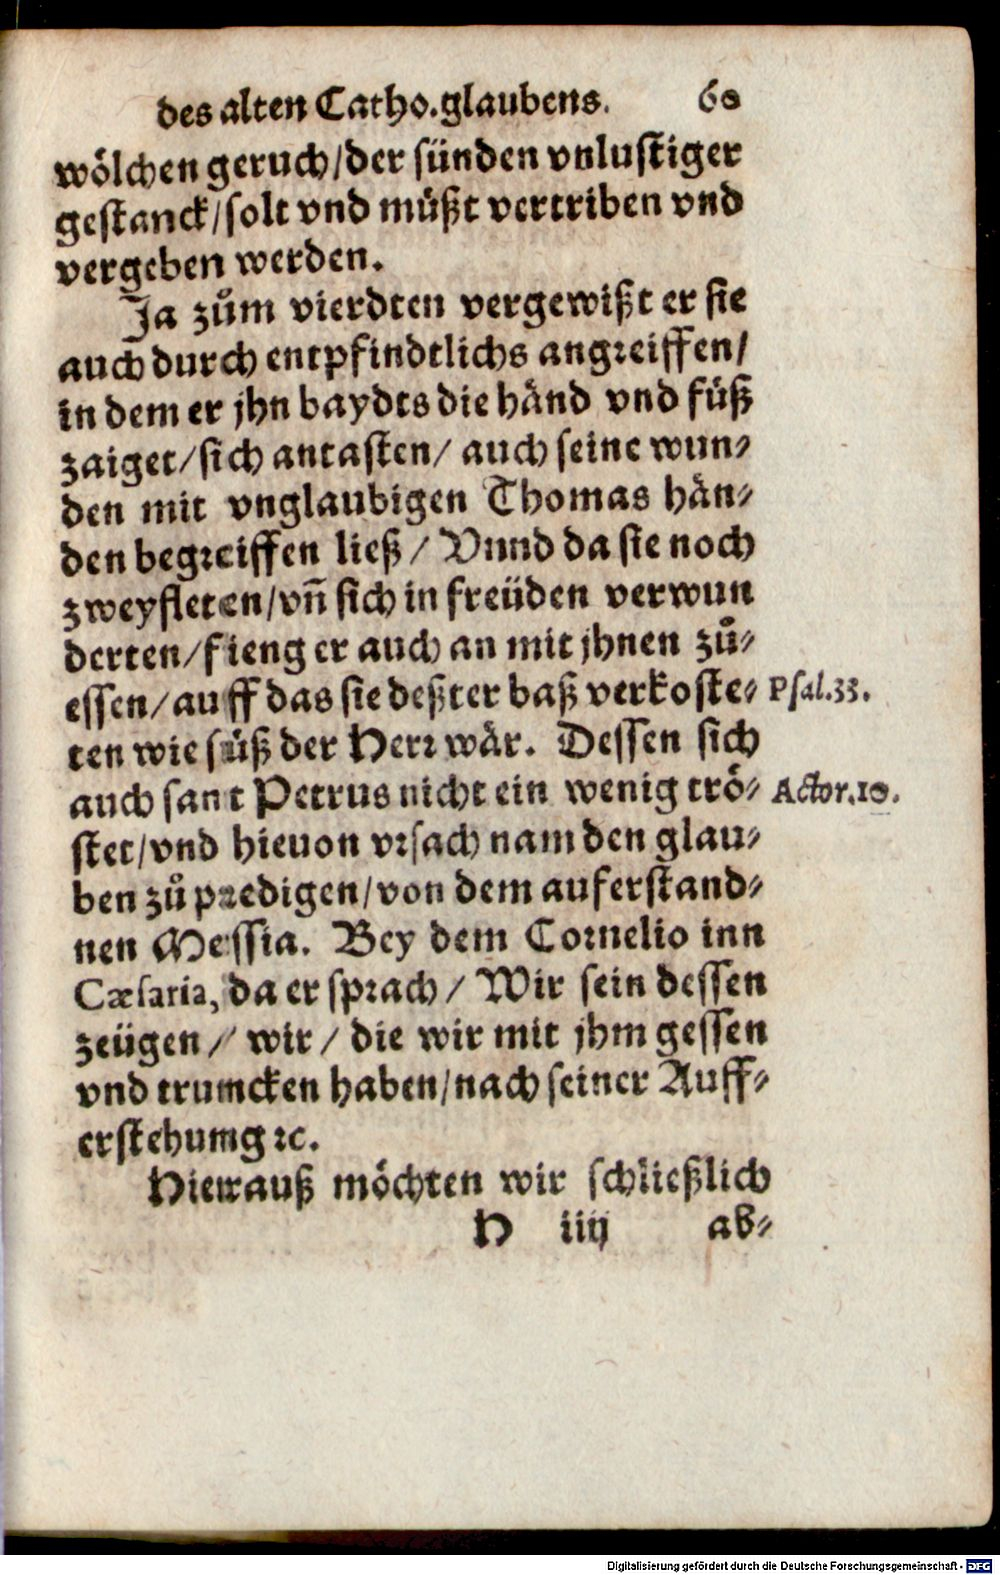 des alten Catho.glaubens. 60
wölchen geruch/der sünden vnlustiger
gestanck/solt vnd müßt vertriben vnd
vergeben werden.
Ja zuͦm vierdten vergewißt er sie
auch durch entpfindtlichs angreiffen/
in dem er jhn baydts die händ vnd füß
zaiget/sich antasten/ auch seine wun-
den mit vnglaubigen Thomas hän-
den begreiffen ließ/ Vnnd da sie noch
zweyfleten/vn̄ sich in freüden verwun
derten/fieng er auch an mit jhnen zuͦ-
essen/auff das sie deßter baß verkoste- Psal.33.
ten wie süß der Herr wär. Dessen sich
auch sant Petrus nicht ein wenig trö- Actor.10.
stet/vnd hieuon vrsach nam den glau-
ben zuͦ predigen/von dem auferstand-
nen Messia. Bey dem Cornelio inn
Cæsaria, da er sprach/ Wir sein dessen
zeügen/ wir/ die wir mit jhm gessen
vnd trumcken haben/nach seiner Auff-
erstehumg ꝛc.
Hierauß möchten wir schließlich
H iiij ab-
Digitalisierung gefördert durch die Deutsche Forschungsgemeinschaft - DFG